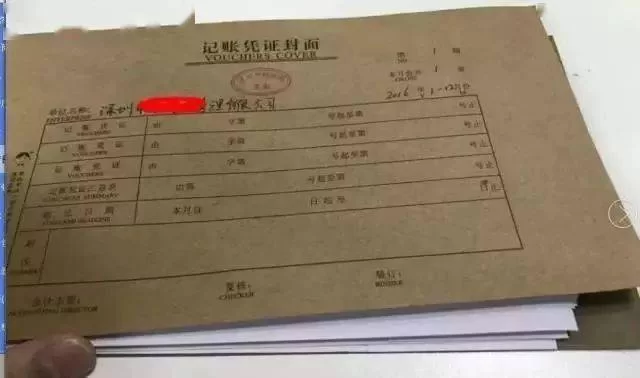 记账凭证封面
VOUCHERS COVER
第 1 册
NO
本月共 1 册
单位名称: 深圳市 理有限公司
ENTERPRISE
2016 年 1-12月份
记账凭证 由 字第 号起至第 号止
VOUCHERS
记账凭证 由 字第 号起至第 号止
VOUCHERS
记账凭证 由 字第 号起至第 号止
VOUCHERS
记账凭证汇总表 由第 号起至第 号止
VOUCHERS SUMMARY
本月自 日起至 日止
附
会计主管: 复核: 装订:
ACCOUNTING DIRECTOR CHECKER BINDER